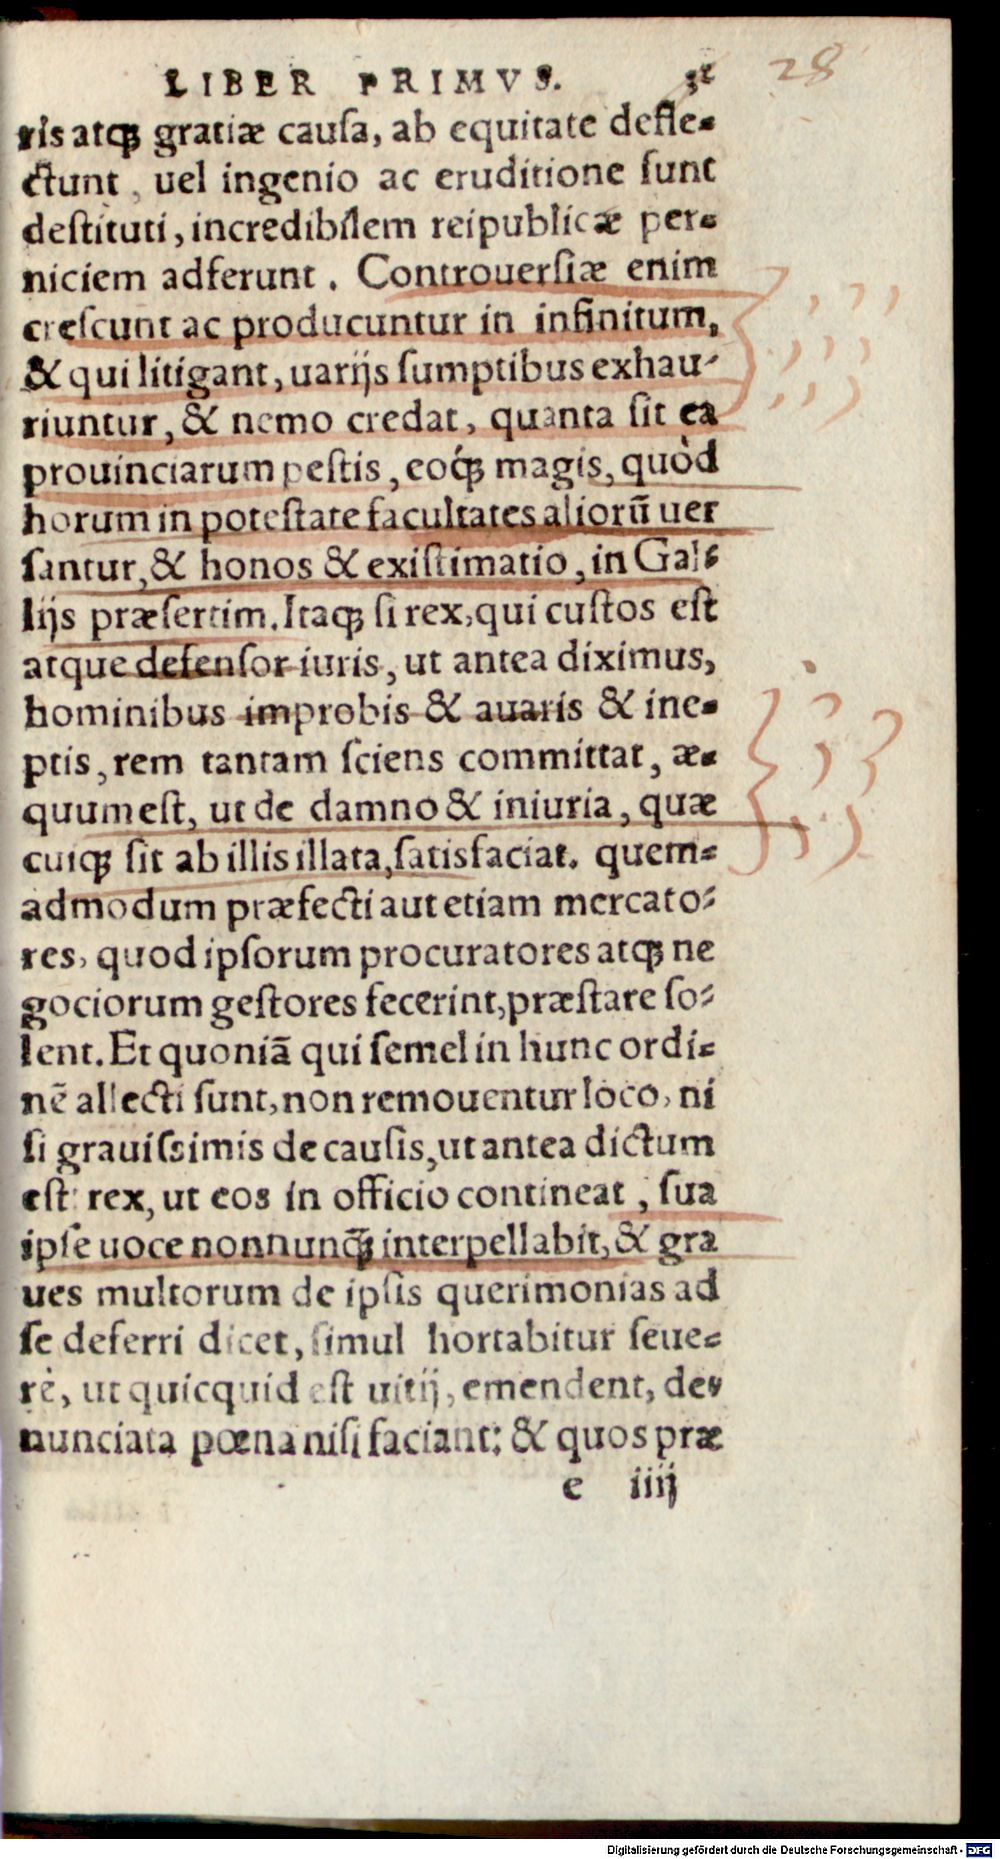 LIBER PRIMVS.
28
ris atq́ꝫ gratiæ cauſa, ab equitate defle-
ctunt, uel ingenio ac eruditione ſunt
deſtituti, incredibilem reipublicæ per-
niciem adferunt. Controuerſiæ enim
creſcunt ac producuntur in infinitum,
& qui litigant, uarijs ſumptibus exhau-
riuntur, & nemo credat, quanta ſit ea
prouinciarum peſtis, eoq́ꝫ magis, quòd
horum in poteſtate facultates aliorũ uer
ſantur, & honos & exiſtimatio, in Gal-
lijs præſertim. Itaqꝫ ſi rex, qui cuſtos eſt
atque defenſor iuris, ut antea diximus,
hominibus improbis & auaris & ine-
ptis, rem tantam ſciens committat, æ-
quum eſt, ut de damno & iniuria, quæ
cuiqꝫ ſit ab illis illata, ſatisfaciat. quem-
admodum præfecti aut etiam mercato-
res, quod ipſorum procuratores atqꝫ ne
gociorum geſtores fecerint, præſtare ſo-
lent. Et quoniã qui ſemel in hunc ordi-
nẽ allecti ſunt, non remouentur loco, ni
ſi grauiſsimis de cauſis, ut antea dictum
eſt: rex, ut eos in officio contineat, ſua
ipſe uoce nonnunq̃ꝫ interpellabit, & gra
ues multorum de ipſis querimonias ad
ſe deferri dicet, ſimul hortabitur ſeue-
rè, ut quicquid eſt uitij, emendent, de-
nunciata pœna niſi faciant: & quos præ
e iiij
Digitalisierung gefördert durch die Deutsche Forschungsgemeinschaft - DFG